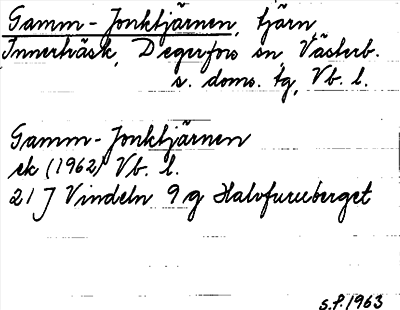 Gamm-Jonktjärnen, tjärn,
Innerträsk, Degerfors sn, Västerb.
s. doms. tg, Vb. l.
Gamm-Jonktjärnen
ek (1962) Vb. l.
21 J Vindeln 9 g Halvfuruberget
S.P. 1963